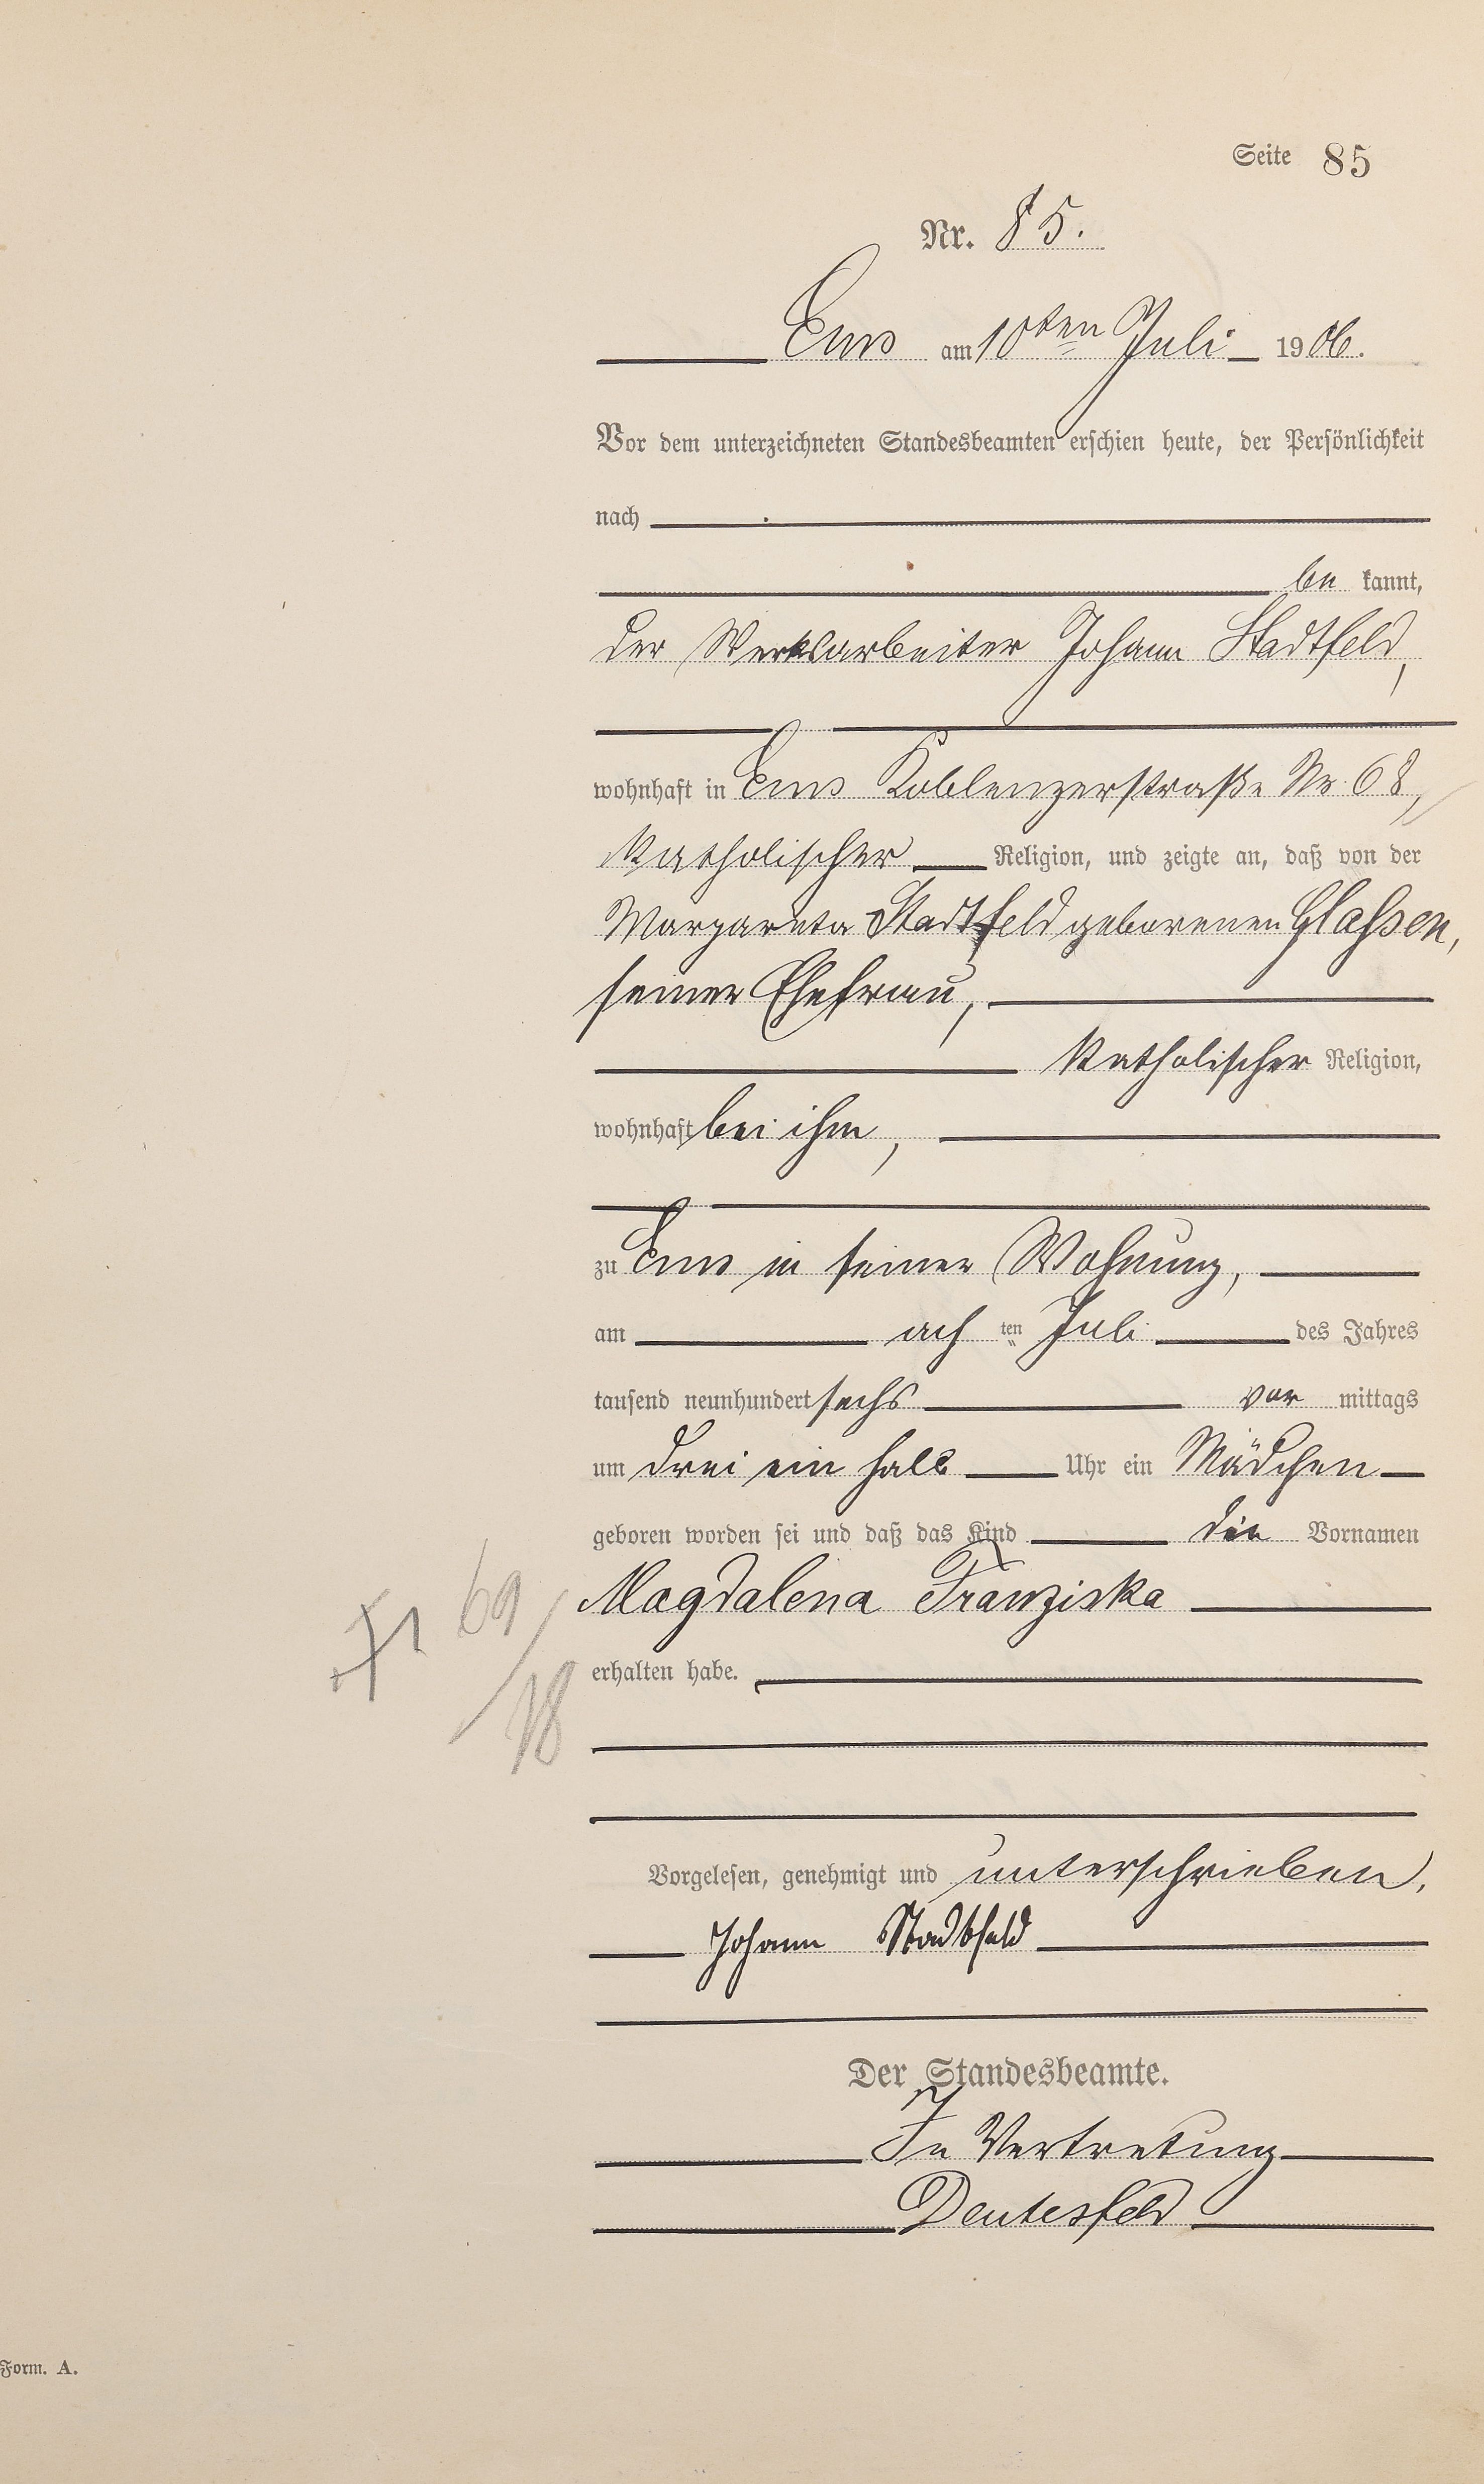 Seite 85
Nr. 85.
Ems am 10ten Juli 1906.
Vor dem unterzeichneten Standesbeamten erschien heute, der Persönlichkeit
nach
be kannt,
der Werksarbeiter Johann Stadtfeld,
wohnhaft in Ems Koblenzerstraße Nr. 68,
katholischer Religion, und zeigte an, daß von der
Margareta Stadtfeld geborenen Glassen,
seiner Ehefrau,
katholischer Religion,
wohnhaft bei ihm,
zu Ems in seiner Wohnung,
am ach ten Juli des Jahres
tausend neunhundert sechs vor mittags
um drei ein halb Uhr ein Mädchen
geboren worden sei und daß das Kind die Vornamen
Magdalena Franziska
erhalten habe.
69/78
Vorgelesen, genehmigt und unterschrieben.
Johann Stadtfeld
Der Standesbeamte.
In Vertretung
Deutesfeld
Form. A.